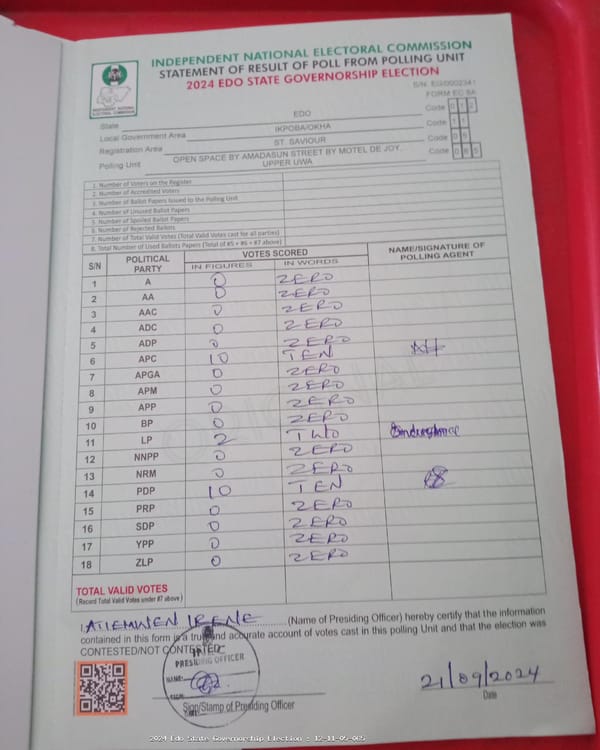 INDEPENDENT NATIONAL ELECTORAL COMMISSION
STATEMENT OF RESULT OF POLL FROM POLLING UNIT
2024 EDO STATE GOVERNORSHIP ELECTION
INDEPENDENT NATIONAL ELECTORAL COMMISSION
FORM EC 8A
State EDO Code 0 1 2
Local Government Area IKPOBA/OKHA Code 1 1
Registration Area ST. SAVIOUR Code 0 5
Polling Unit OPEN SPACE BY AMADASUN STREET BY MOTEL DE JOY, UPPER UWA Code 0 6 5
1. Number of Voters on the Register
2. Number of Accredited Voters
3. Number of Ballot Papers Issued to the Polling Unit
4. Number of Unused Ballot Papers
5. Number of Spoiled Ballot Papers
6. Number of Rejected Ballots
7. Number of Total Valid Votes (Total Valid Votes cast for all parties)
8. Total Number of Used Ballots Papers (Total of #5 + #6 + #7 above)
S/N POLITICAL PARTY VOTES SCORED NAME/SIGNATURE OF POLLING AGENT
IN FIGURES IN WORDS
1 A 0 ZERO
2 AA 0 ZERO
3 AAC 0 ZERO
4 ADC 0 ZERO
5 ADP 0 ZERO
6 APC 10 TEN
7 APGA 0 ZERO
8 APM 0 ZERO
9 APP 0 ZERO
10 BP 0 ZERO
11 LP 2 TWO
12 NNPP 0 ZERO
13 NRM 0 ZERO
14 PDP 10 TEN
15 PRP 0 ZERO
16 SDP 0 ZERO
17 YPP 0 ZERO
18 ZLP 0 ZERO
TOTAL VALID VOTES
(Record Total Valid Votes under #7 above)
IRENE (Name of Presiding Officer) hereby certify that the information
contained in this form is a true and accurate account of votes cast in this polling Unit and that the election was
CONTESTED/NOT CONTESTED
PRESIDING OFFICER
NAME:
SIGN:
Sign/Stamp of Presiding Officer
21/09/2024
Date
2024 Edo State Governorship Election : 12-11-05-065